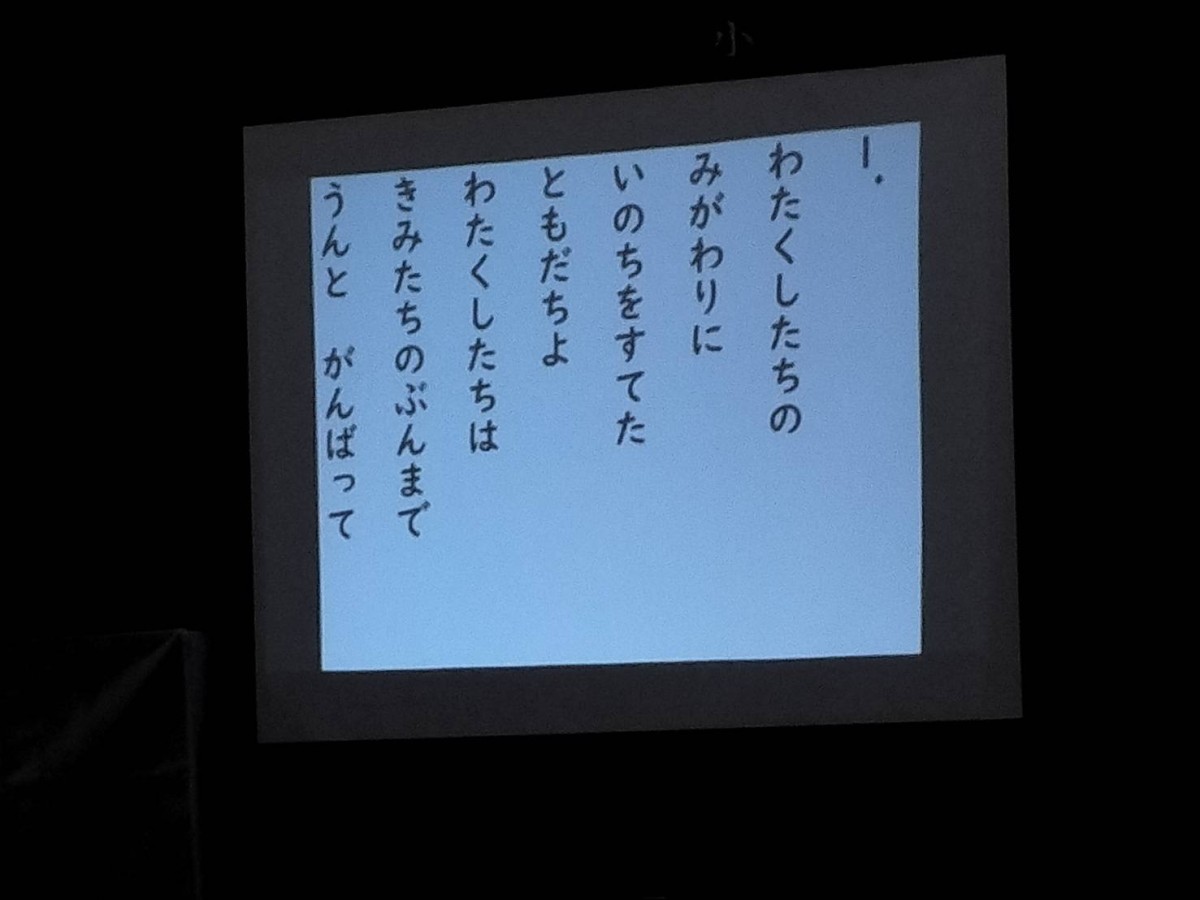 小
1.
わたくしたちの
みがわりに
いのちをすてた
ともだちよ
わたくしたちは
きみたちのぶんまで
うんと　がんばって